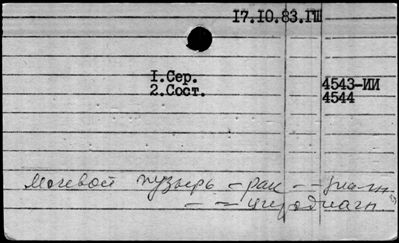 17.10.83.ГП
1.Сер.
2.Сост.
4543-ИИ
4544
Мочевой пузырь – рак – – диагн
– – цитодиагн